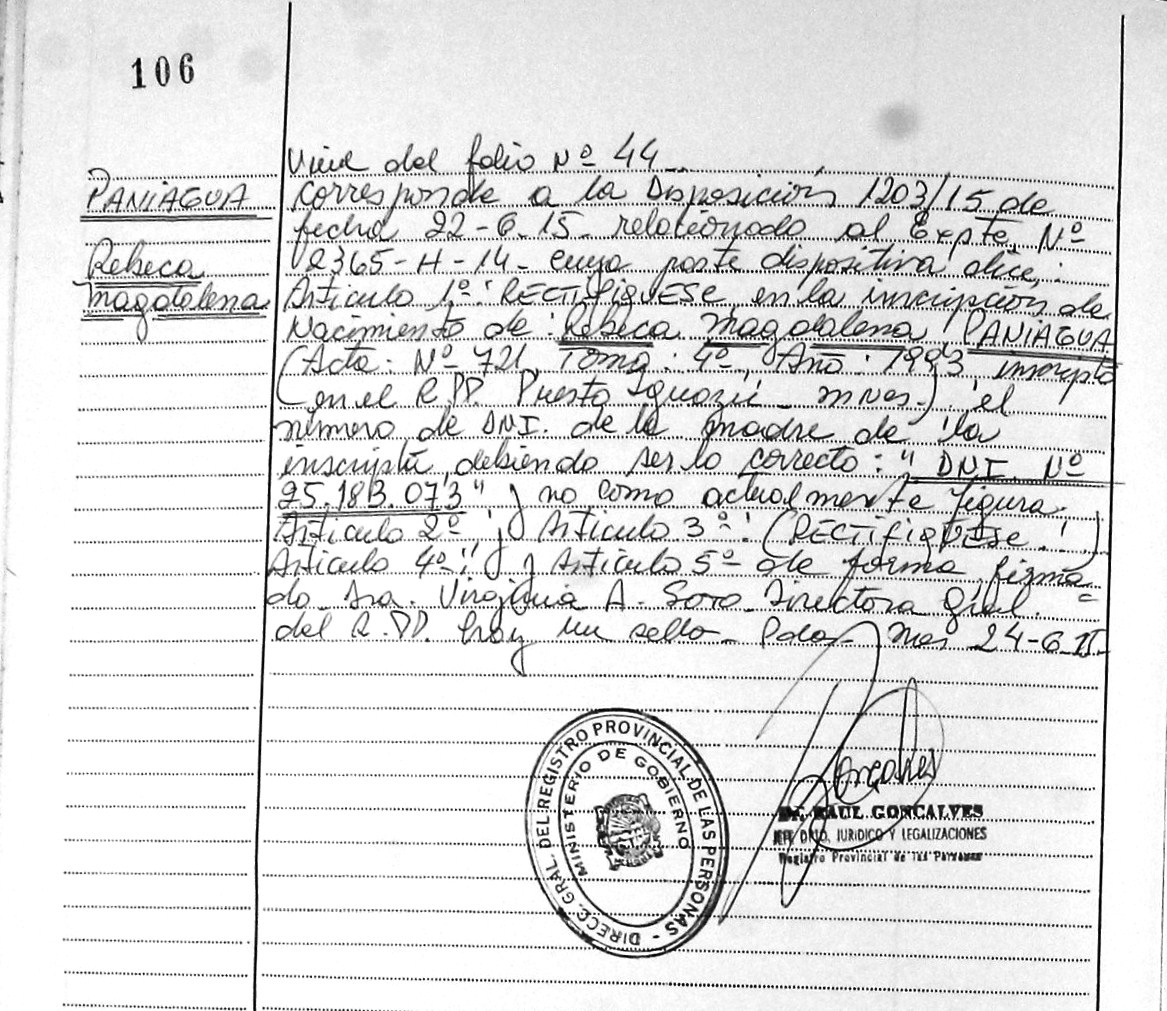 106
PANIAGUA
Rebeca
Magdalena
Viene del folio Nº 44
Corresponde a la Disposición 1203/15 de
fecha 22-6-15 relacionado al Expte. Nº
2365-H-14- cuya parte dispositiva dice:
Artículo 1º: RECTIFIQUESE en la inscripción de
Nacimiento de: Rebeca Magdalena PANIAGUA
(Acta: Nº 721, Tomo: 4º, Año: 1993, inscripta
en el R.PP. Puerto Iguazú - Mnes.), el
número de DNI. de la madre de la
inscripta, debiendo ser lo correcto: "DNI Nº
25.183.073" y no como actualmente figura.
Artículo 2º; y Artículo 3º: (RECTIFIQUESE.)
Artículo 4º; y Artículo 5º de forma, firma
do Sra. Virginia A. Soro Directora Gral.
del R.PP. hay un sello - Pdas Mnes 24-6-15-
DIRECC. GRAL. DEL REGISTRO PROVINCIAL DE LAS PERSONAS -
MINISTERIO DE GOBIERNO
Goncalves
Dr. RAUL GONCALVES
JEFE DPTO. JURIDICO Y LEGALIZACIONES
Registro Provincial de las Personas